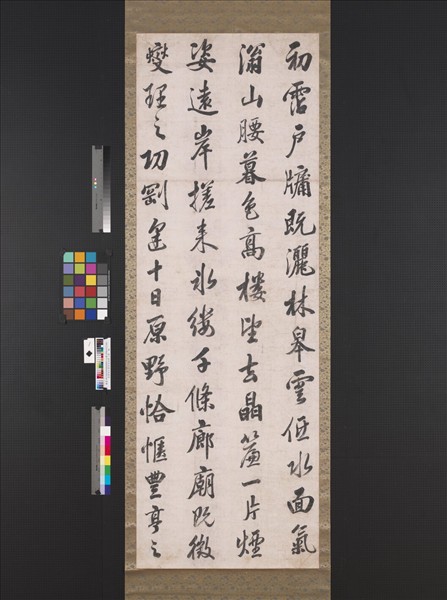 初霑戶牖既灑林皋雲低水面氣
滃山腰暮色高樓望去晶簾一片煙
姿遠岸搓来氷縷千條廊廟既徵
燮理之功剛逢十日原野恰愜豐亨之